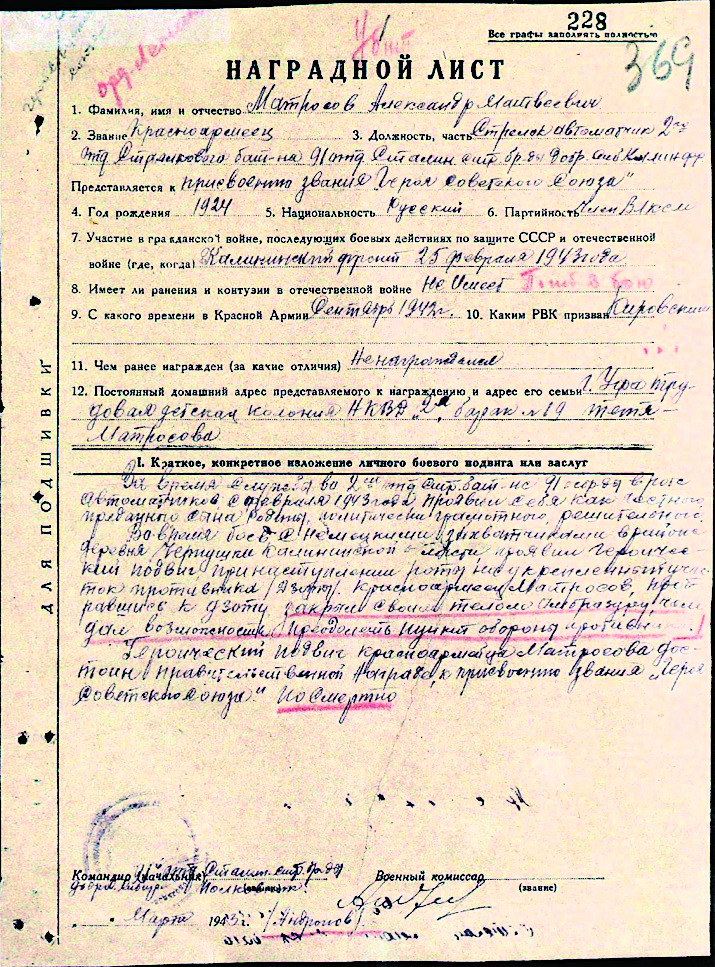 228
Все графы заполнять полностью
369
убит
НАГРАДНОЙ ЛИСТ
1. Фамилия, имя и отчество Матросов Александр Матвеевич
2. Звание Красноармеец 3. Должность, часть Стрелок автоматчик 2го
Представляется к присвоению звания "Героя Советского Союза"
4. Год рождения 1924 5. Национальность Русский 6. Партийность Член ВЛКСМ
7. Участие в гражданской войне, последующих боевых действиях по защите СССР и отечественной
войне (где, когда) Калининский фронт 25 февраля 1943 года
8. Имеет ли ранения и контузии в отечественной войне Не Имеет
9. С какого времени в Красной Армии Сентябрь 1942г. 10. Каким РВК призван Кировским
11. Чем ранее награжден (за какие отличия) Не награждался
12. Постоянный домашний адрес представляемого к награждению и адрес его семьи г. Уфа тру-
довая детская колония НКВД "2" барак №19 тетя
Матросова
I. Краткое, конкретное изложение личного боевого подвига или заслуг
За время службы во 2ом отд. стр. бат-не 91 бригады в роте
Автоматчиков с февраля 1943 года проявил себя как честного,
преданного сына Родины, политически грамотного, решительного.
Во время боев с немецкими захватчиками в районе
деревни Чернушки Калининской области проявил героичес-
кий подвиг при наступлении роты на укрепленный учас-
ток противника (дзоты). Красноармеец Матросов, проб-
равшись к дзоту закрыл своим телом амбразуру, чем
дал возможность преодолеть пункт обороны противни
Героический подвиг красноармейца Матросова дос-
тоин правительственной награды, к присвоению звания "Героя
Советского Союза" Посмертно
ДЛЯ ПОДШИВКИ
Командир (начальник) Сталин. стр. бр-ды Военный комиссар
Полковник (звание)
" " Марта 1943 г. /Андронов/